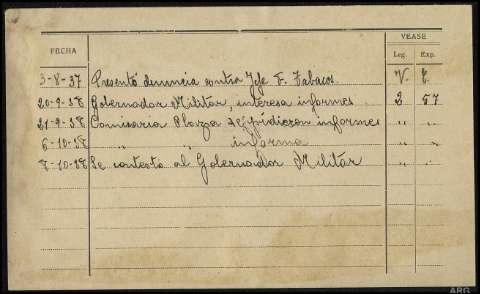 VEASE
FECHA Leg. Exp.
3-8-37 Presentó denuncia contra Jefe F. Tabacos. V. E.
20-9-38 Gobernador Militar, interesa informes 2 57
21-9-38 Comisaria Plaza se pidieron informes " "
6-10-38 " " informa " "
7-10-38 Se contestó al Gobernador Militar " "
ARG